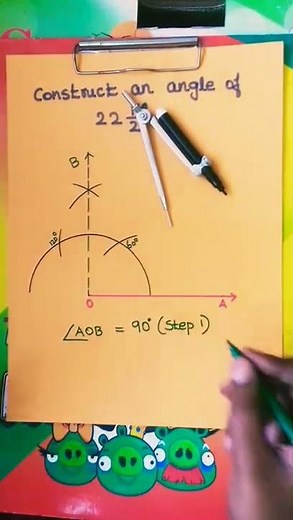 Construct an angle of
22 1/2
B
120°
60°
O
A
∠AOB = 90° (Step 1)